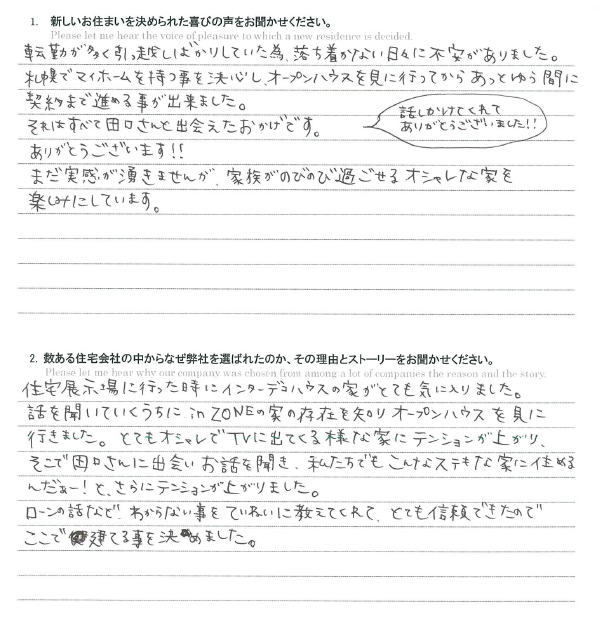 1. 新しいお住まいを決められた喜びの声をお聞かせください。
Please let me hear the voice of pleasure to which a new residence is decided.
転勤が多く引っ越しばかりしていた為、落ち着かない日々に不安がありました。
札幌でマイホームを持つ事を決心し、オープンハウスを見に行ってからあっとゆう間に
契約まで進める事が出来ました。
それはすべて田口さんと出会えたおかげです。
話しかけてくれて
ありがとうございました!!
ありがとうございます!!
まだ実感が湧きませんが、家族がのびのび過ごせるオシャレな家を
楽しみにしています。
2. 数ある住宅会社の中からなぜ弊社を選ばれたのか、その理由とストーリーをお聞かせください。
Please let me hear why our company was chosen from among a lot of companies the reason and the story.
住宅展示場に行った時にインターデコハウスの家がとても気に入りました。
話を聞いていくうちに in ZONEの家の存在を知りオープンハウスを見に
行きました。とてもオシャレでTVに出てくる様な家にテンションが上がり、
そこで田口さんに出会いお話を聞き、私たちでもこんなステキな家に住める
んだぁー!と、さらにテンションが上がりました。
ローンの話など わからない事をていねいに教えてくれて、とても信頼できたので
ここで建てる事を決めました。